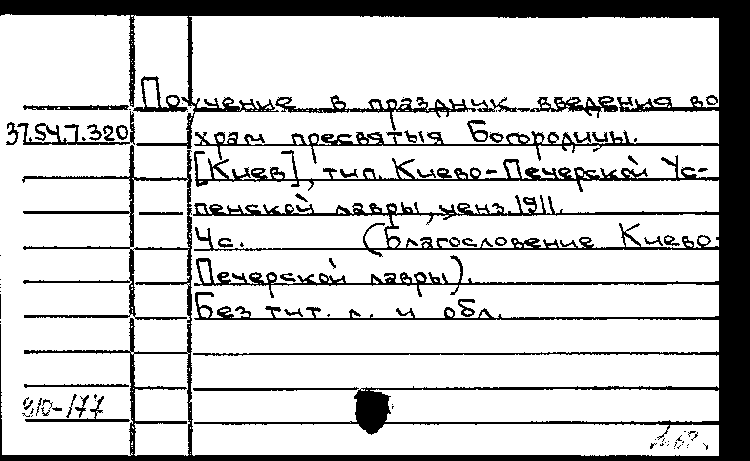 Поучение в праздник введения во
37.54.7.320 храм пресвятыя Богородицы.
[Киев], тип. Киево-Печерской Ус-
пенской лавры, ценз. 1911.
4с. (Благословение Киево-
Печерской лавры).
Без тит. л. и обл.
810-177